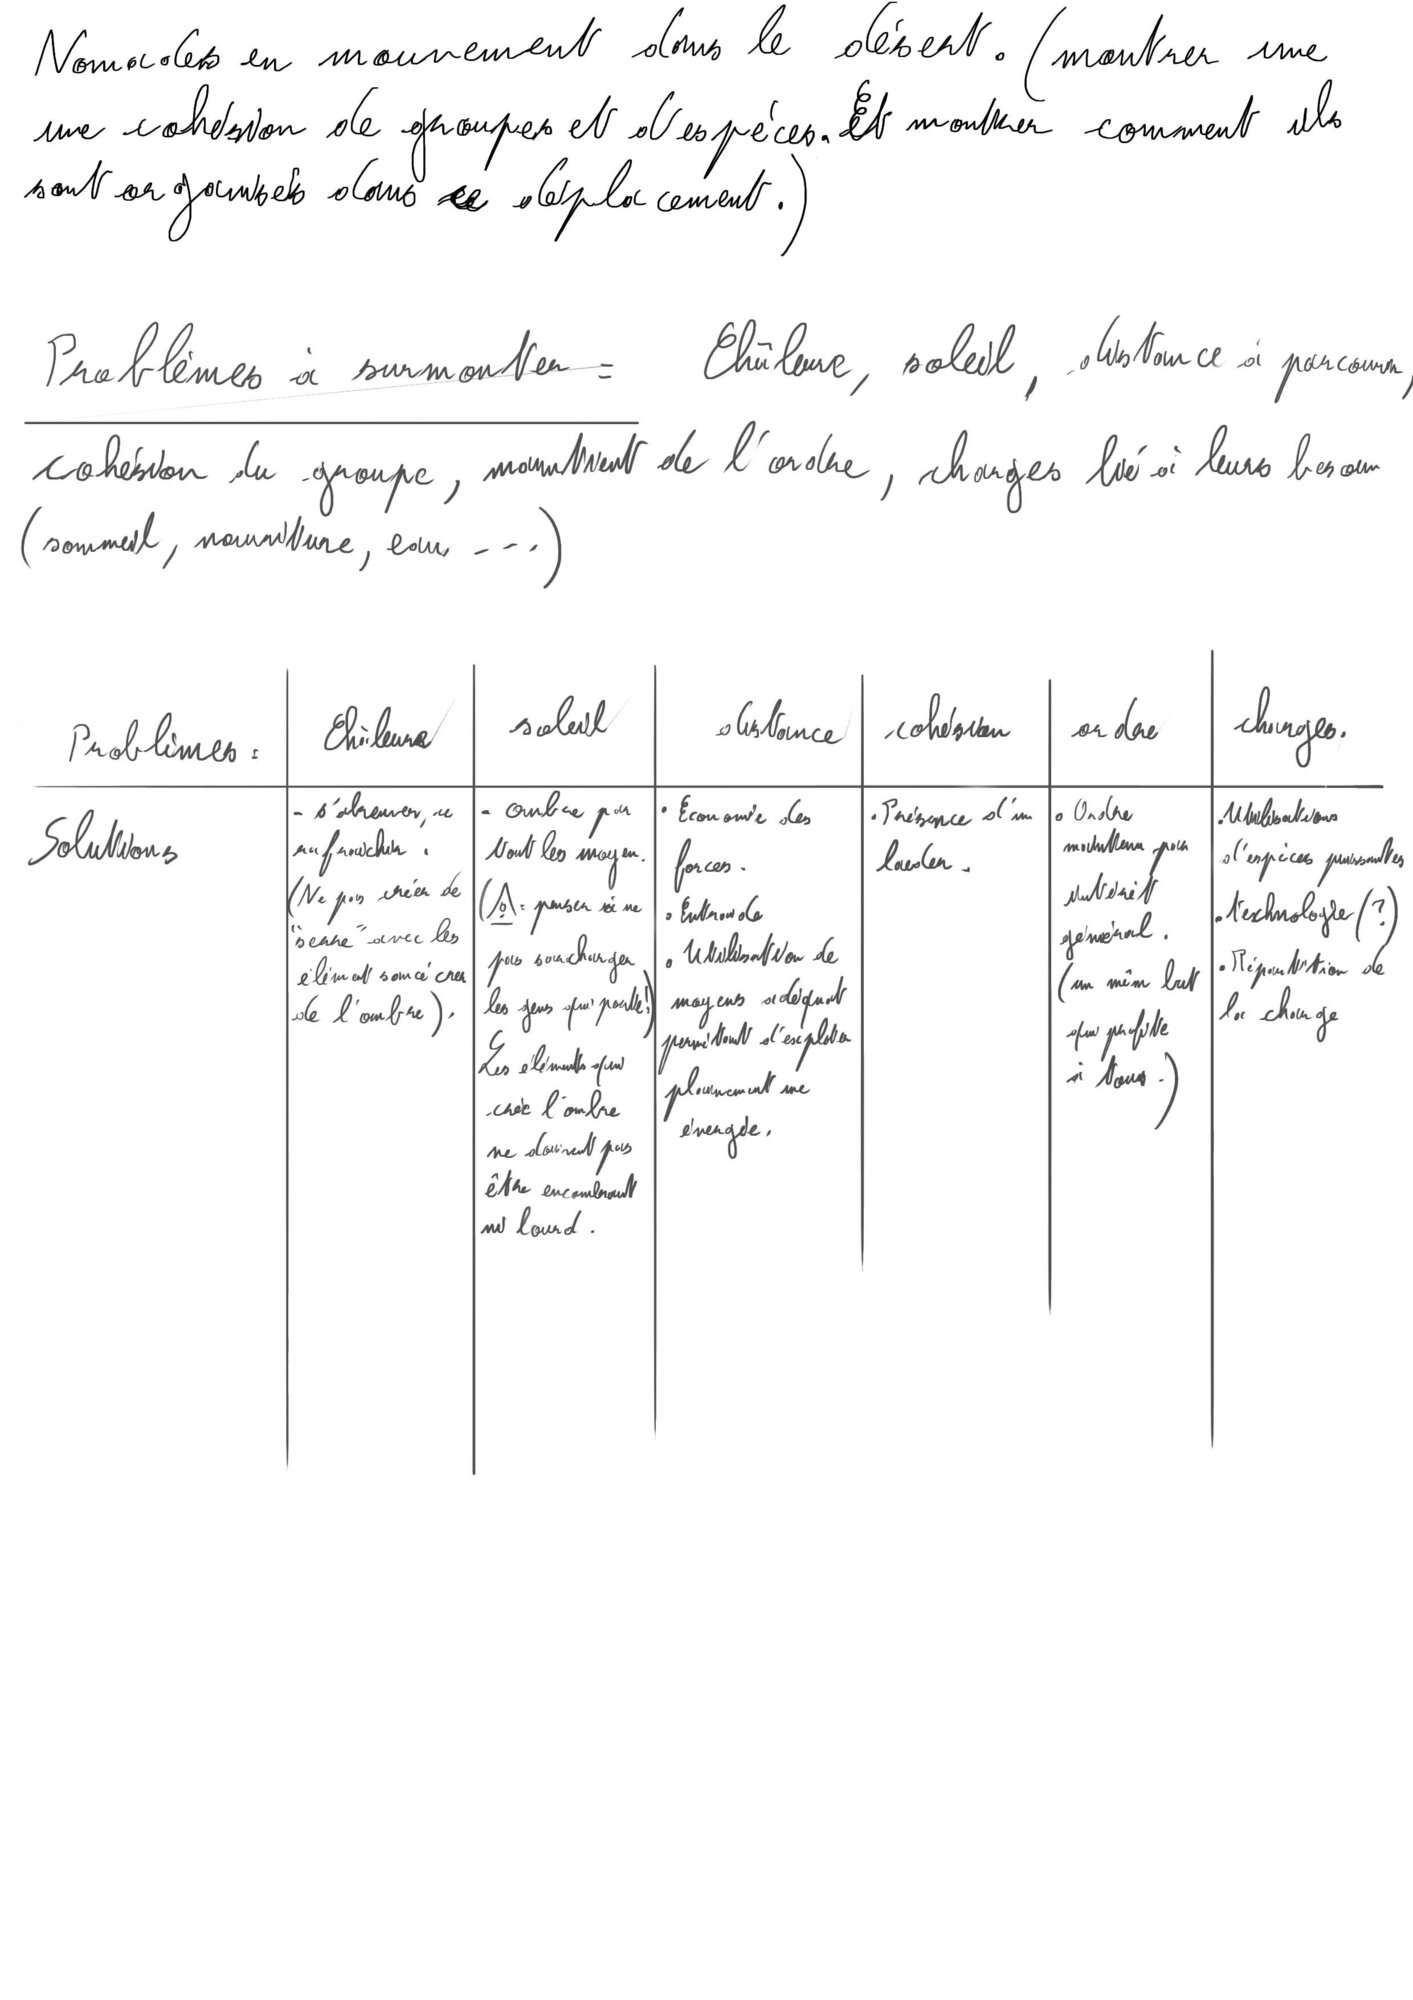 Nomades en mouvement dans le désert. (montrer une
une cohésion de groupes et d'espéces. Et montrer comment ils
sont organisés dans ce déplacement.)
Problèmes à surmonter = Chaleur, soleil, distance à parcourir,
cohésion du groupe, maintient de l'ordre, charges lié à leurs besoin
(sommeil, nourriture, eau, ---.)
Problèmes : Chaleur soleil distance cohésion ordre charges.
Solutions
- s'abreuver, se
rafraichir.
(Ne pas créer de
"serre" avec les
élément sencé créer
de l'ombre).
- ombre par
tout les moyen.
(⚠ : penser à ne
pas surcharger
les gens qui porte!)
Les éléments qui
crée l'ombre
ne doivent pas
être encombrant
ni lourd.
• Économie des
forces.
• Entraide
• Utilisation de
moyens adéquat
permettant d'exploiter
pleinement une
énergie.
• Présence d'un
leader.
• Ordre
maintenu par
intérêt
général.
(un même but
qui profite
à tous.)
• Utilisations
d'espèces puissantes
• technologie (?)
• Répartition de
la charge